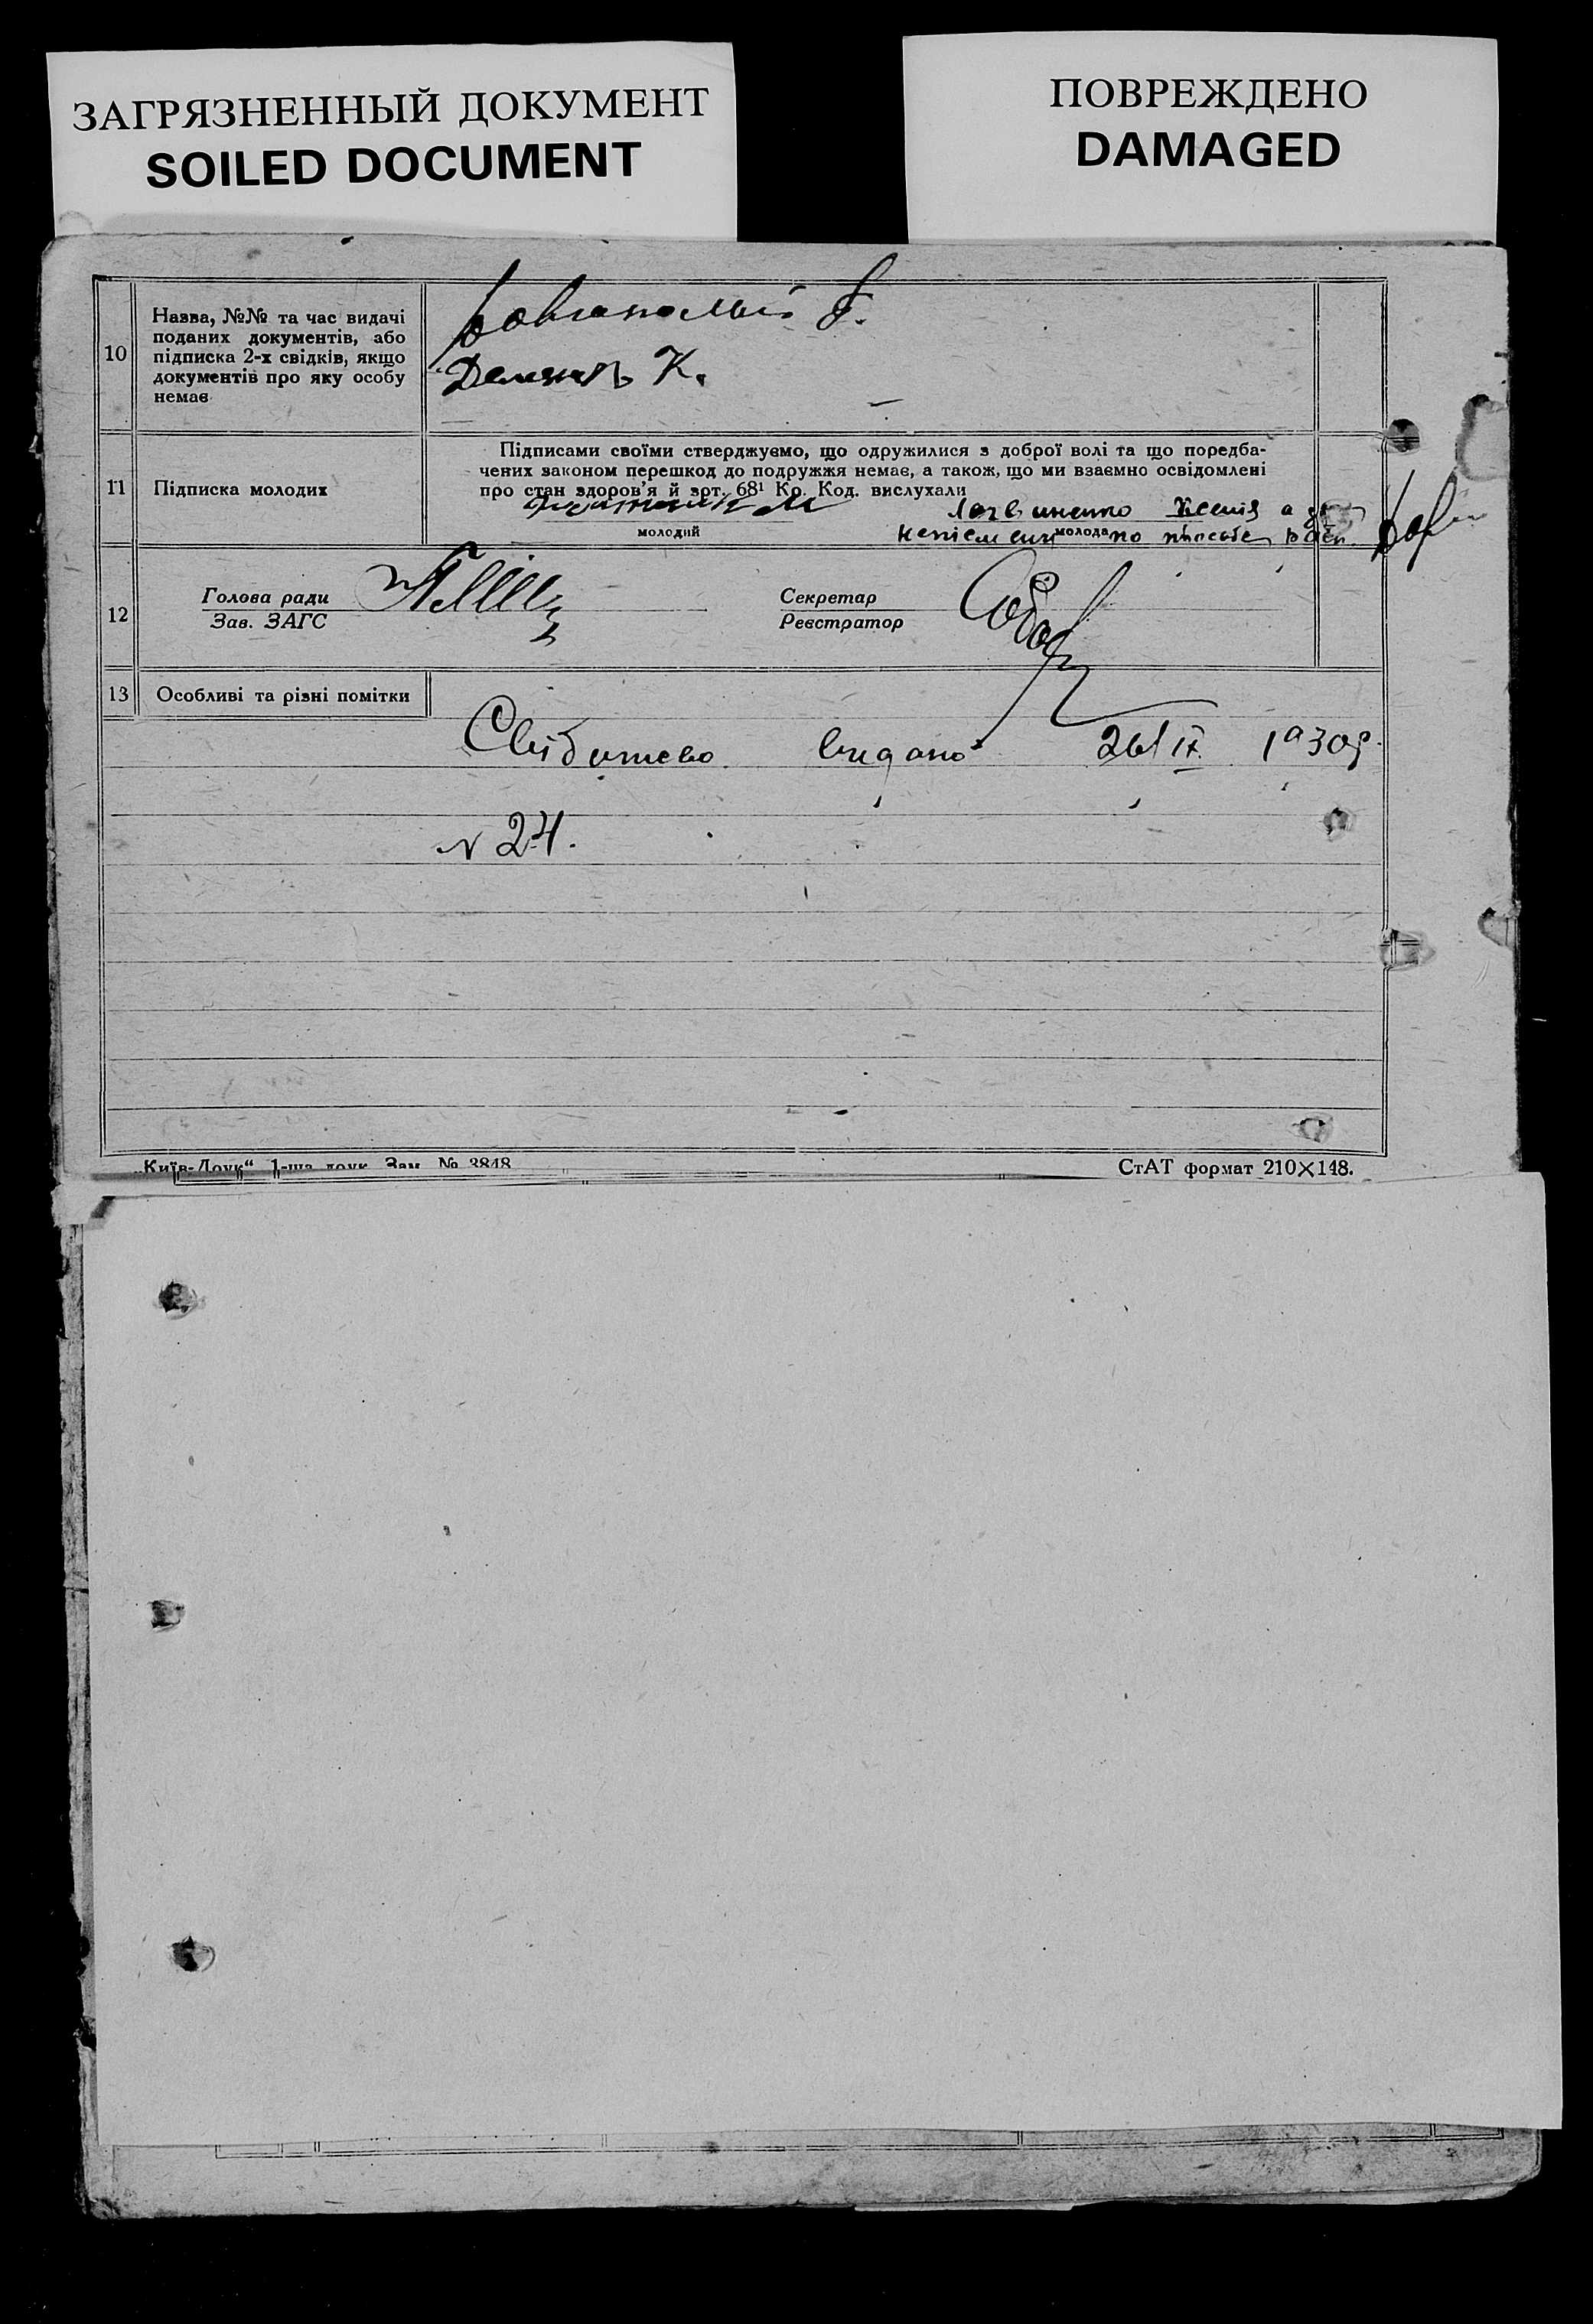 ЗАГРЯЗНЕННЫЙ ДОКУМЕНТ
SOILED DOCUMENT
ПОВРЕЖДЕНО
DAMAGED
10
Назва, №№ та час видачі
поданих документів, або
підписка 2-х свідків, якщо
документів про яку особу
немає
К.
11
Підписка молодих
Підписами своїми стверджуємо, що одружилися з доброї волі та що поредба-
чених законом перешкод до подружжя немає, а також, що ми взаємно освідомлені
про стан здоров'я й арт. 68¹ Кр. Код. вислухали
Ксенія а за
молодий
молода
по просьбе
12
Голова ради
Зав. ЗАГС
Секретар
Реєстратор
13
Особливі та різні помітки
видано 26/IX 1930р.
N 24.
„Київ-Друк“ 1-ша друк. Зам. № 3848
СтАТ формат 210×148.